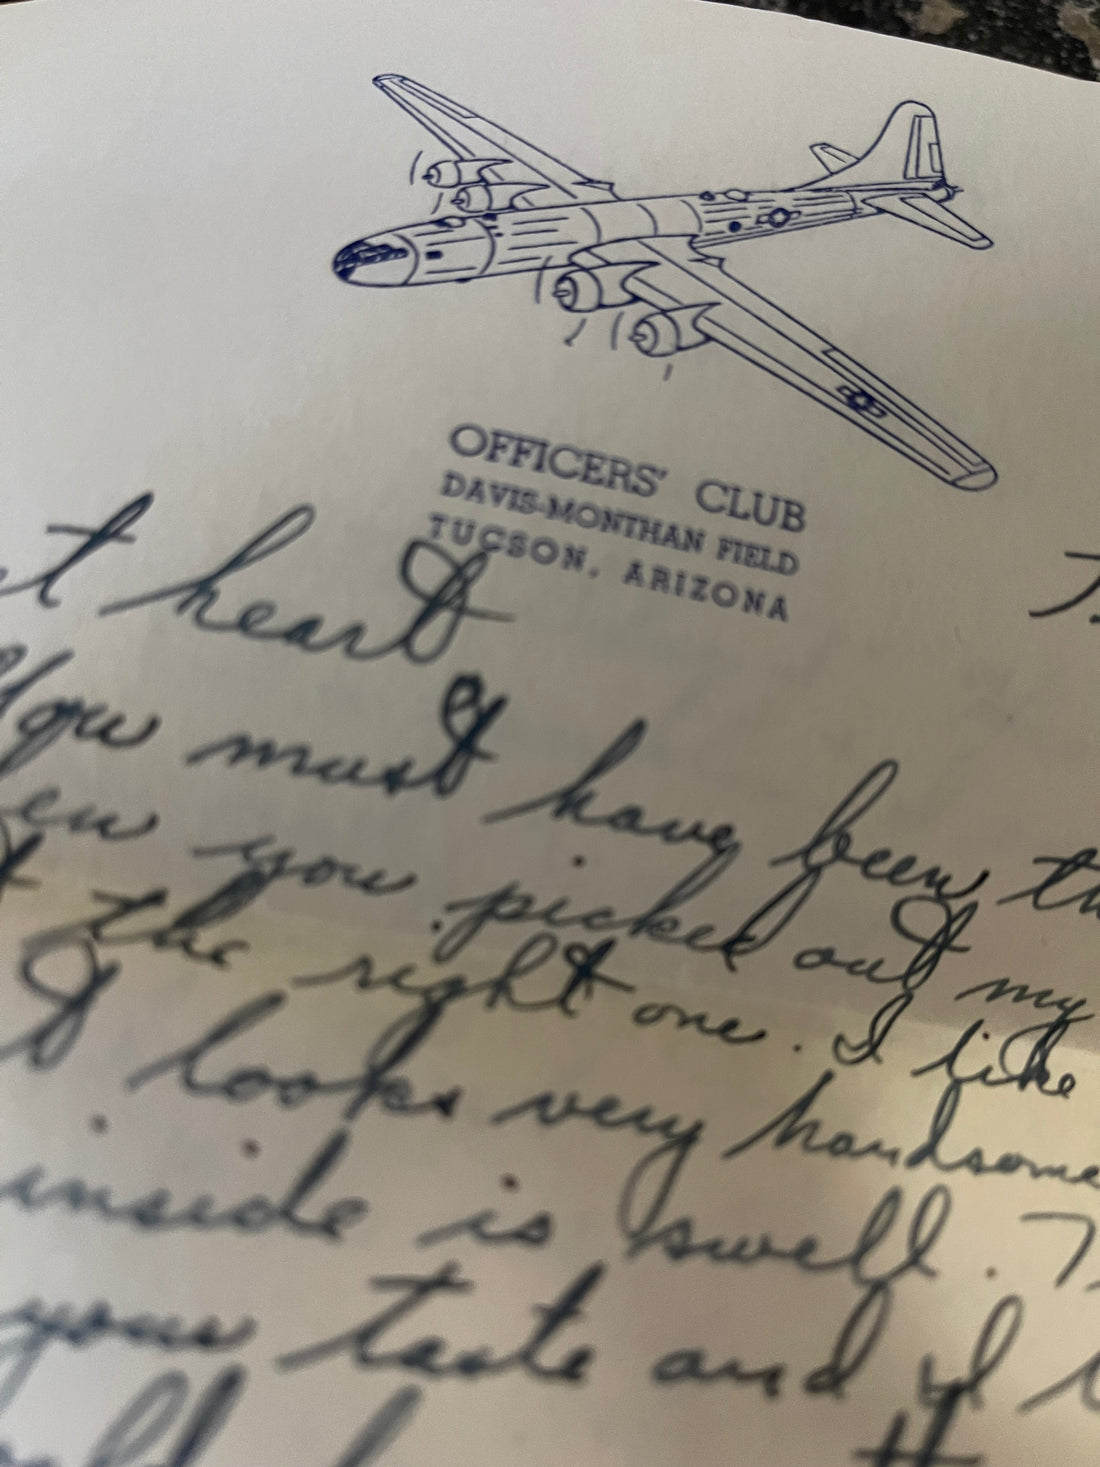 OFFICERS' CLUB
DAVIS-MONTHAN FIELD
TUCSON, ARIZONA
heart
You must have been
you picked out my
the right one. I like
looks very handsome
inside is swell.
your taste and I